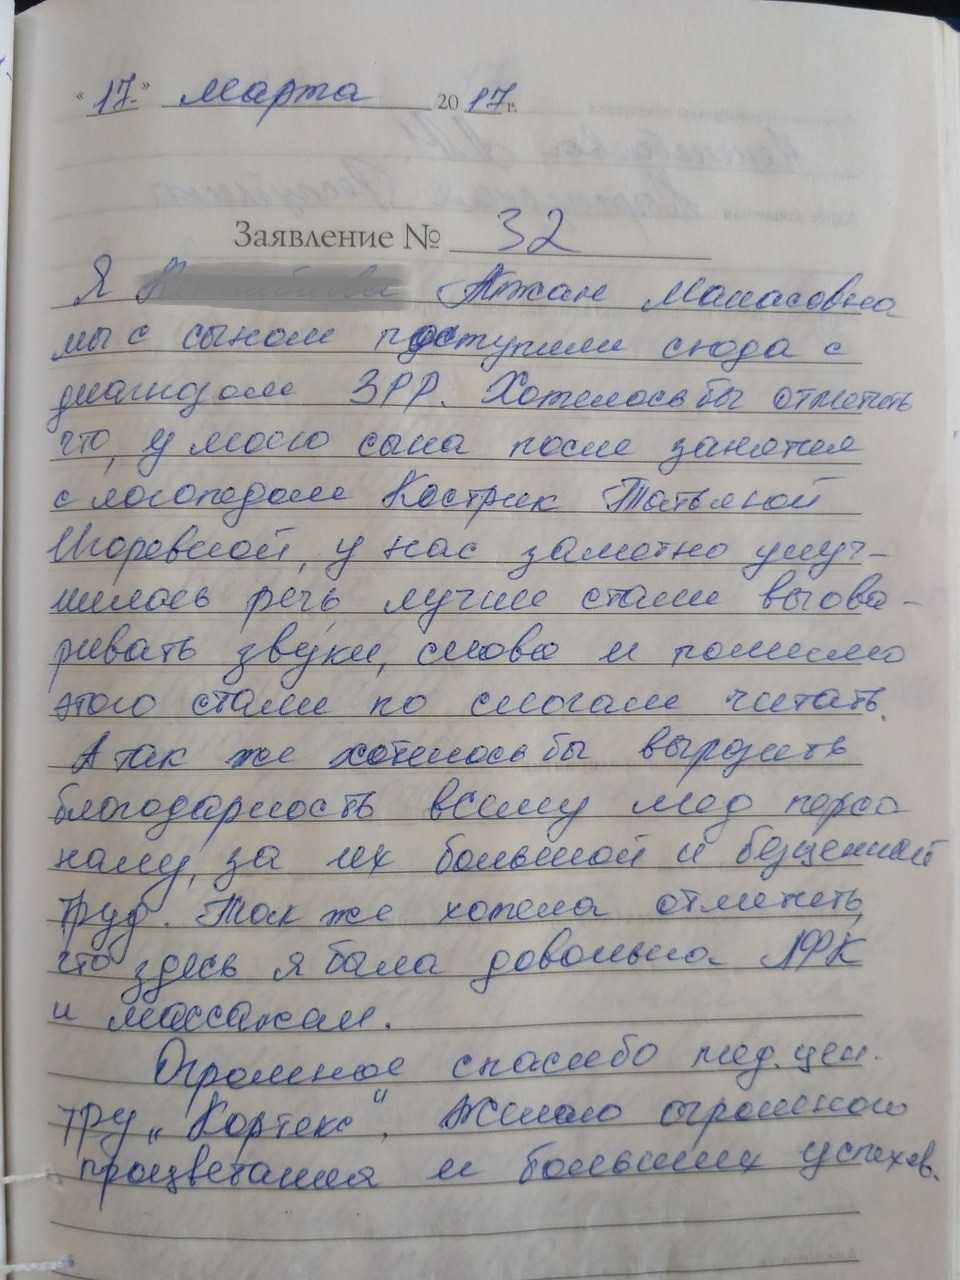 "17" марта 2017 г.
Заявление № 32
Я Айжан Манасовна
мы с сыном поступили сюда с
диагнозом ЗРР. Хотелось бы отметить
что, у моего сына после занятия
с логопедом Кострик Татьяной
Игоревной, у нас заметно улуч-
шилось речь, лучше стали выгова-
ривать звуки, слова и помимо
этого стали по слогам читать.
А так же хотелось бы выразить
благодарность всему мед персо
налу, за их большой и безценный
труд. Так же хотела отметить,
что здесь я была довольна ЛФК
и массажам.
Огромное спасибо мед. цен-
тру „Кортекс". Желаю огромного
процветания и больших успехов.